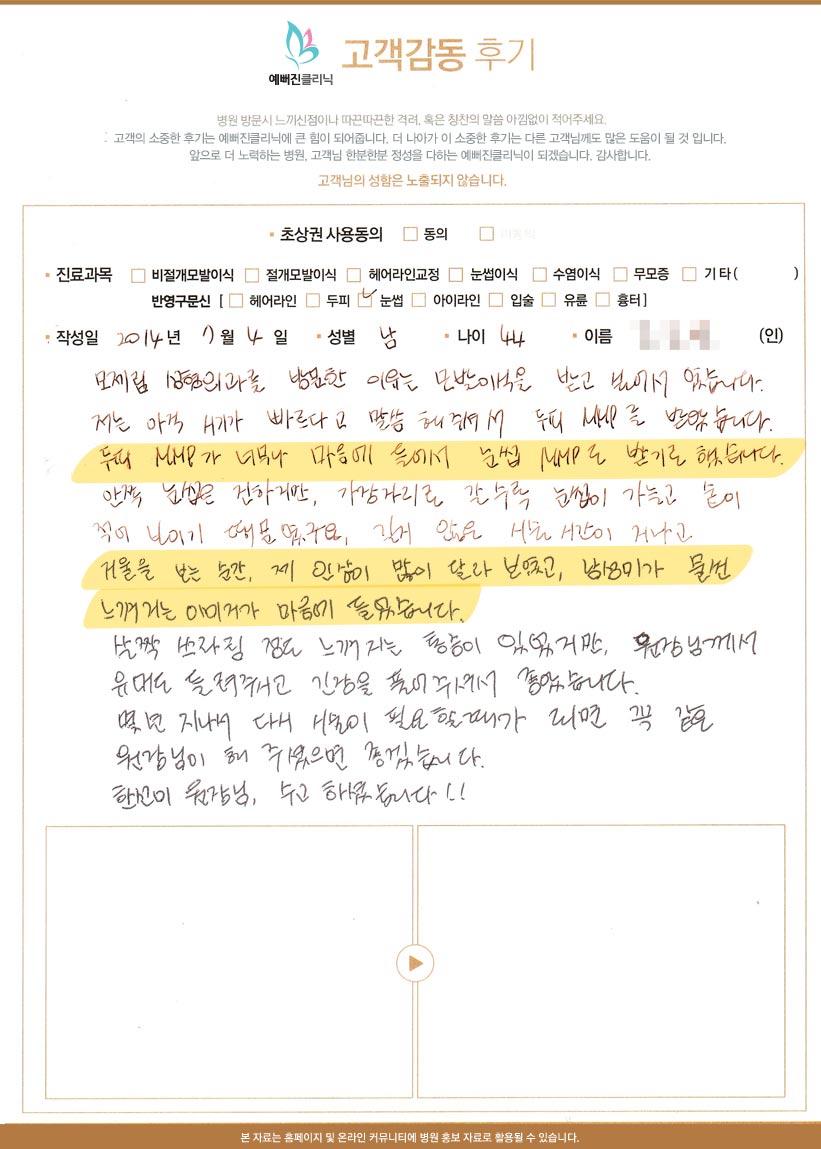 예뻐진클리닉
고객감동 후기
병원 방문시 느끼신점이나 따끈따끈한 격려, 혹은 칭찬의 말씀 아낌없이 적어주세요.
: 고객의 소중한 후기는 예뻐진클리닉에 큰 힘이 되어줍니다. 더 나아가 이 소중한 후기는 다른 고객님께도 많은 도움이 될 것 입니다.
앞으로 더 노력하는 병원, 고객님 한분한분 정성을 다하는 예뻐진클리닉이 되겠습니다. 감사합니다.
고객님의 성함은 노출되지 않습니다.
▪ 초상권 사용동의 □ 동의 □ 미동의
▪ 진료과목 □ 비절개모발이식 □ 절개모발이식 □ 헤어라인교정 □ 눈썹이식 □ 수염이식 □ 무모증 □ 기타 ( )
반영구문신 [ □ 헤어라인 □ 두피 ☑ 눈썹 □ 아이라인 □ 입술 □ 유륜 □ 흉터 ]
▪ 작성일 2014 년 7 월 4 일 ▪ 성별 남 ▪ 나이 44 ▪ 이름 (인)
모제림 성형외과를 방문한 이유는 모발이식을 받고 싶어서 였습니다.
저는 아직 시기가 빠르다고 말씀 해주셔서 두피 MHP를 받았습니다.
두피 MHP가 너무나 마음에 들어서 눈썹 MHP도 받기로 했습니다.
안쪽 눈썹은 진하지만, 가장자리로 갈수록 눈썹이 가늘고 숱이
적어 보이기 때문였구요, 길지 않은 시술시간이 지나고
거울을 보는 순간, 제 인상이 많이 달라 보였고, 남성미가 물씬
느껴지는 이미지가 마음에 들었습니다.
살짝 쓰라림 정도 느껴지는 통증이 있었지만, 원장님께서
유머도 들려주시고 긴장을 풀어주셔서 좋았습니다.
몇년 지나서 다시 시술이 필요할때가 되면 꼭 같은
원장님이 해 주셨으면 좋겠습니다.
한보미 원장님, 수고 하셨습니다!!
본 자료는 홈페이지 및 온라인 커뮤니티에 병원 홍보 자료로 활용될 수 있습니다.